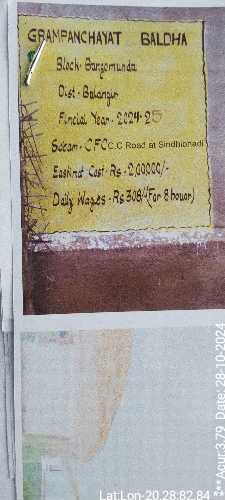 GRAMPANCHAYAT BALDHA
Block- Bangomunda
Dist- Balangir
Fincial Year- 2024-25
Sceam- CFC C.C Road at Sindhibhadi
Eastimat Cost- Rs- 2,00000/-
Daily Wages- Rs 308/-(For 8 houar)
***Acur:3.79 Date: 28-10-2024
Lat:Lon-20.28:82.84